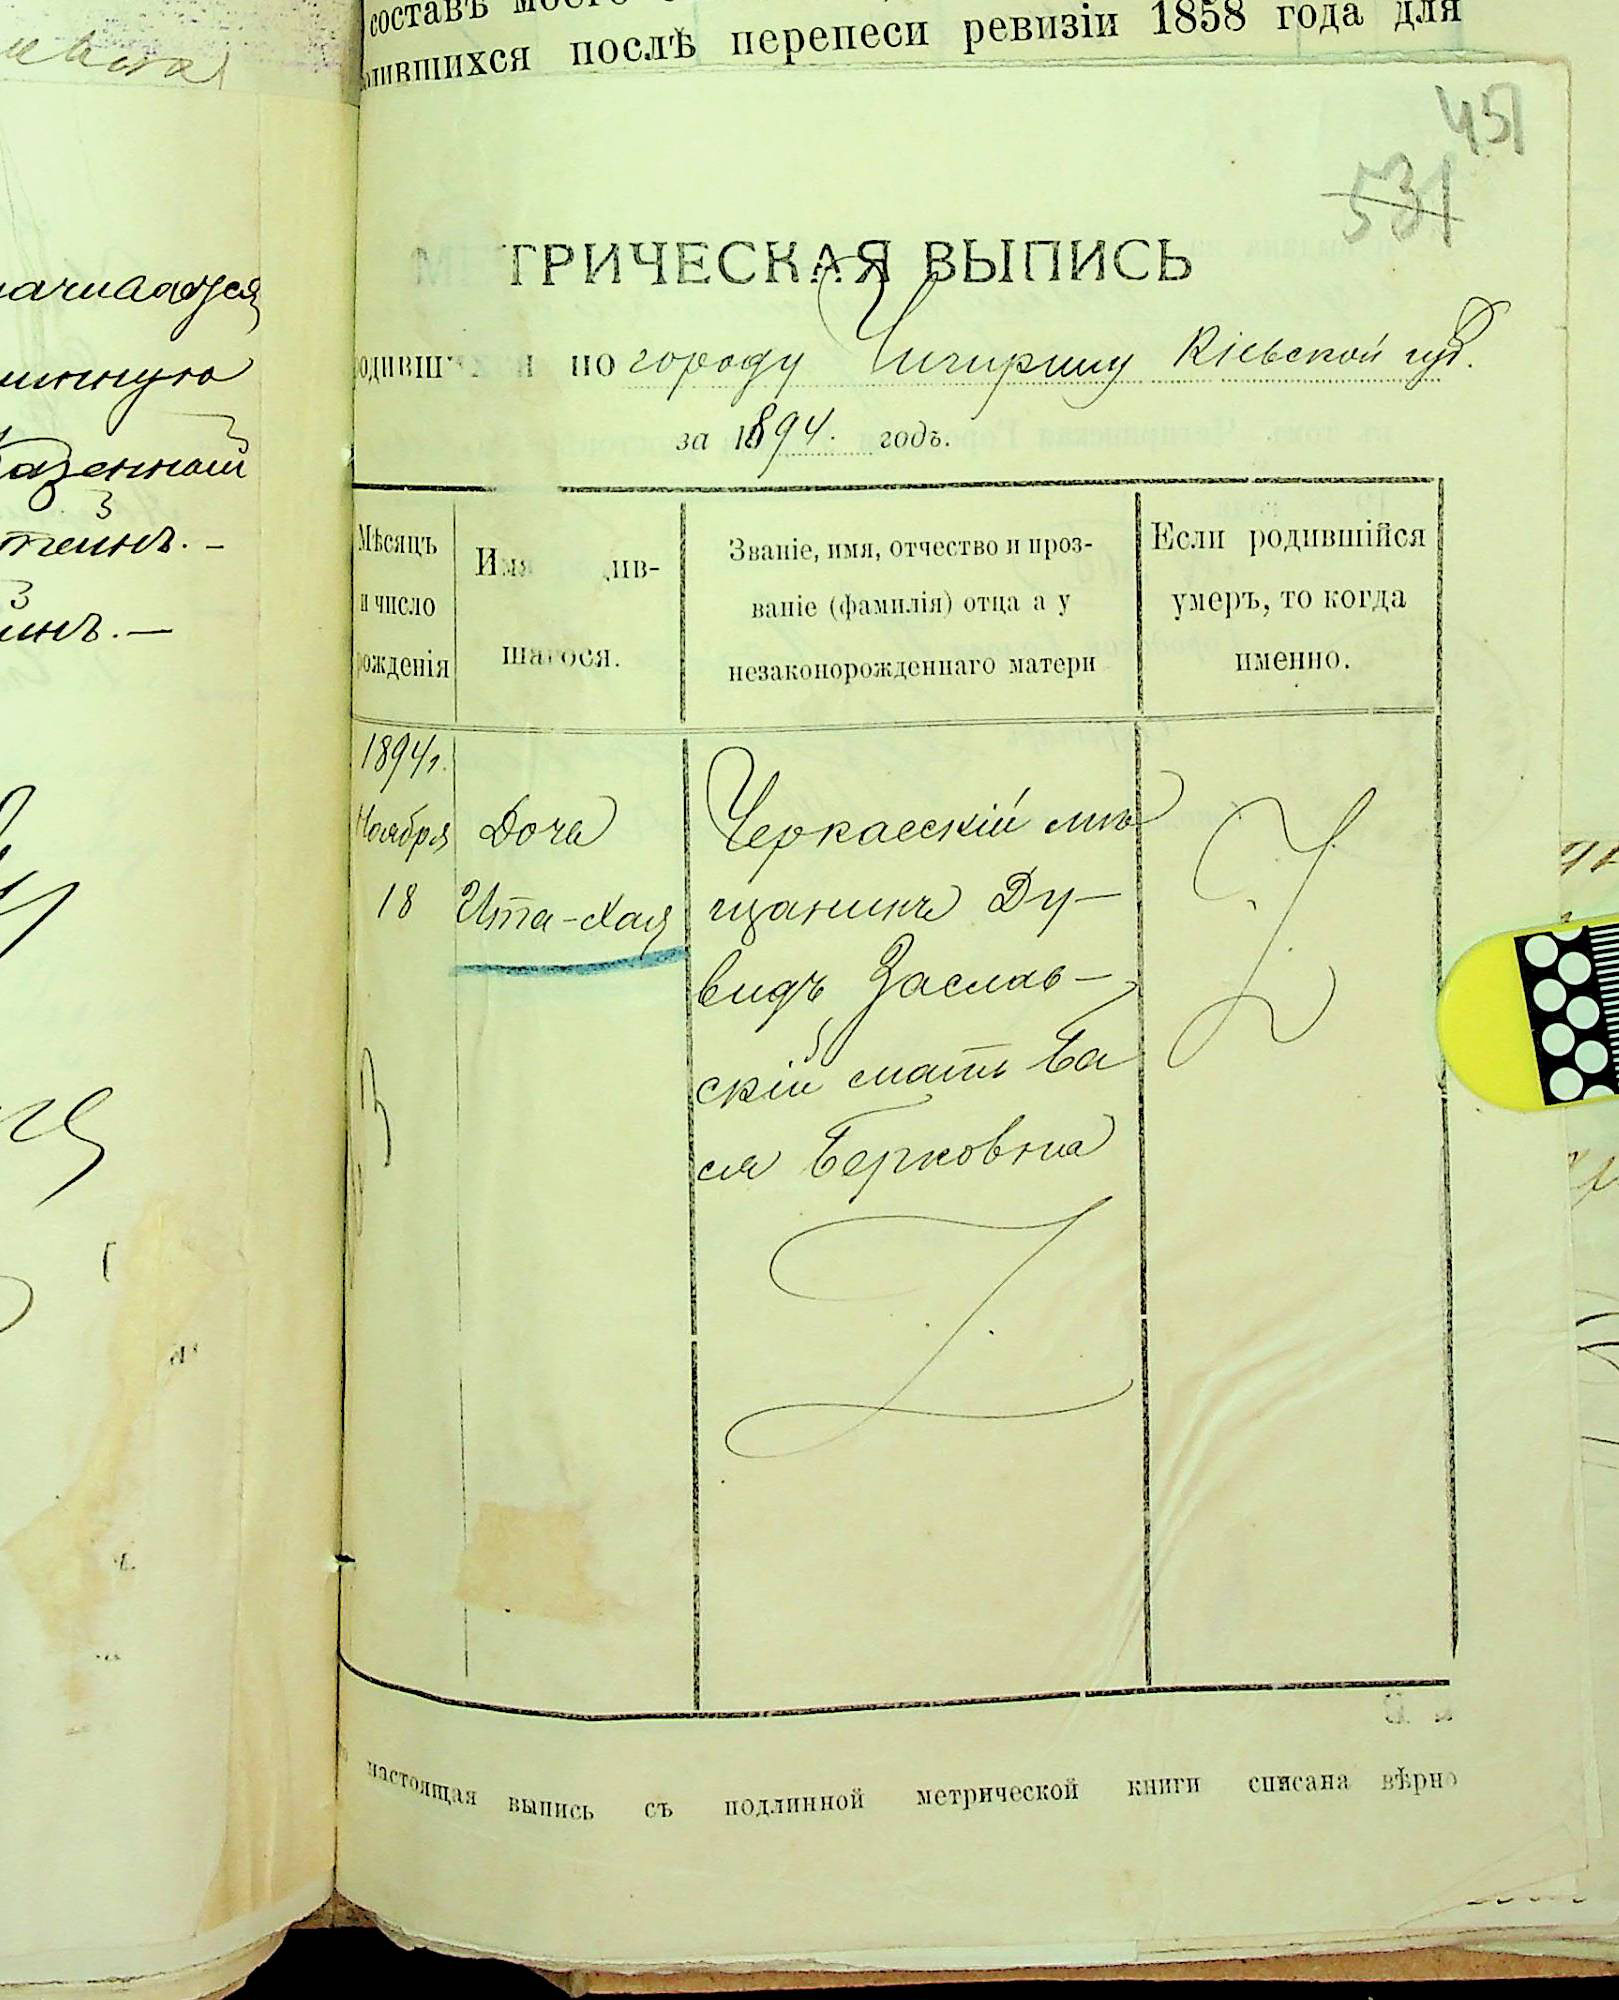 составъ
послѣ перепеси ревизіи 1858 года для
451
531
ТРИЧЕСКАЯ ВЫПИСЬ
по городу Чигирину Кіевской губ.
за 1894. годъ.
Мѣсяцъ
и число
рожденія
Имя див-
шагося.
Званіе, имя, отчество и проз-
ваніе (фамилія) отца а у
незаконорожденнаго матери
Если родившійся
умеръ, то когда
именно.
1894 г.
Ноября
18
Дочь
Ита-Хая
Черкасскій мѣ
щанинъ Ду-
видъ Заслав-
скій мать Ба
ся Берковна
настоящая выпись съ подлинной метрической книги списана вѣрно